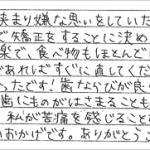 挟まり嫌な思いをしていた
で矯正をすることに決め
楽で、食べ物もほとんど
であればすぐに直してくだ
ったです!歯ならびが良く
歯にものがはさまることも
私が苦痛を感じること
おかげです。ありがとうこ